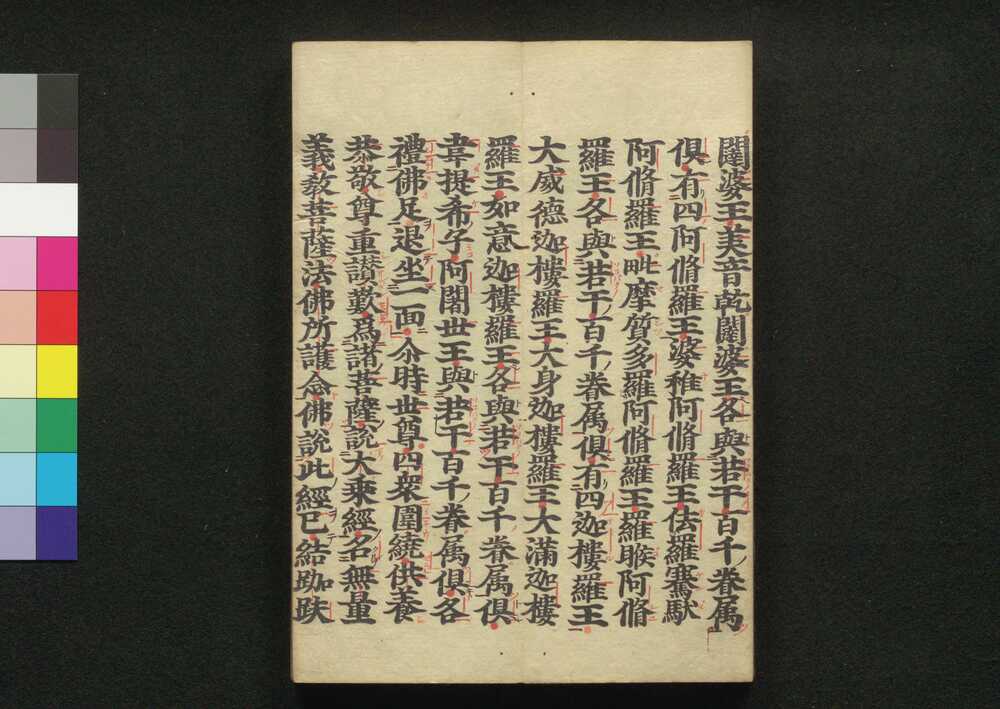 闥婆王美音乾闥婆王各與若干百千眷属
俱有四阿脩羅王婆稚阿脩羅王佉羅騫馱
阿脩羅王毗摩質多羅阿脩羅王羅睺阿脩
羅王各與若干百千眷属俱有四迦樓羅王
大威德迦樓羅王大身迦樓羅王大滿迦樓
羅王如意迦樓羅王各與若干百千眷属俱
韋提希子阿闍世王與若干百千眷属俱各
禮佛足退坐一面尒時世尊四衆圍繞供養
恭敬尊重讃歎爲諸菩薩説大乘經名無量
義教菩薩法佛所護念佛説此經已結跏趺